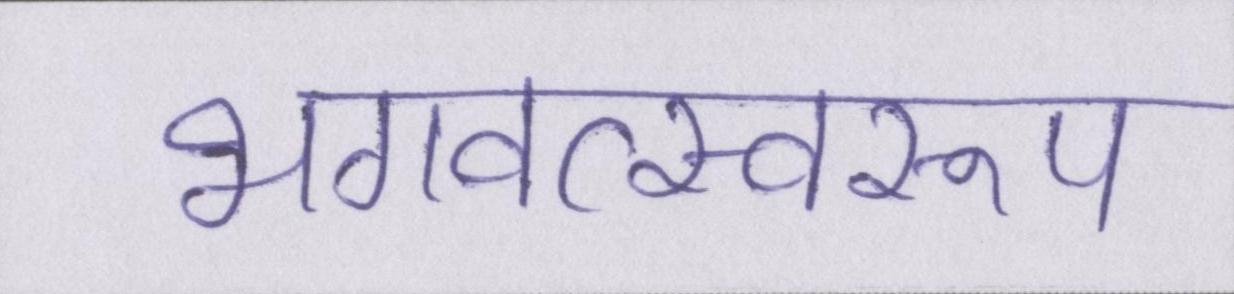 भगवत्स्वरूप